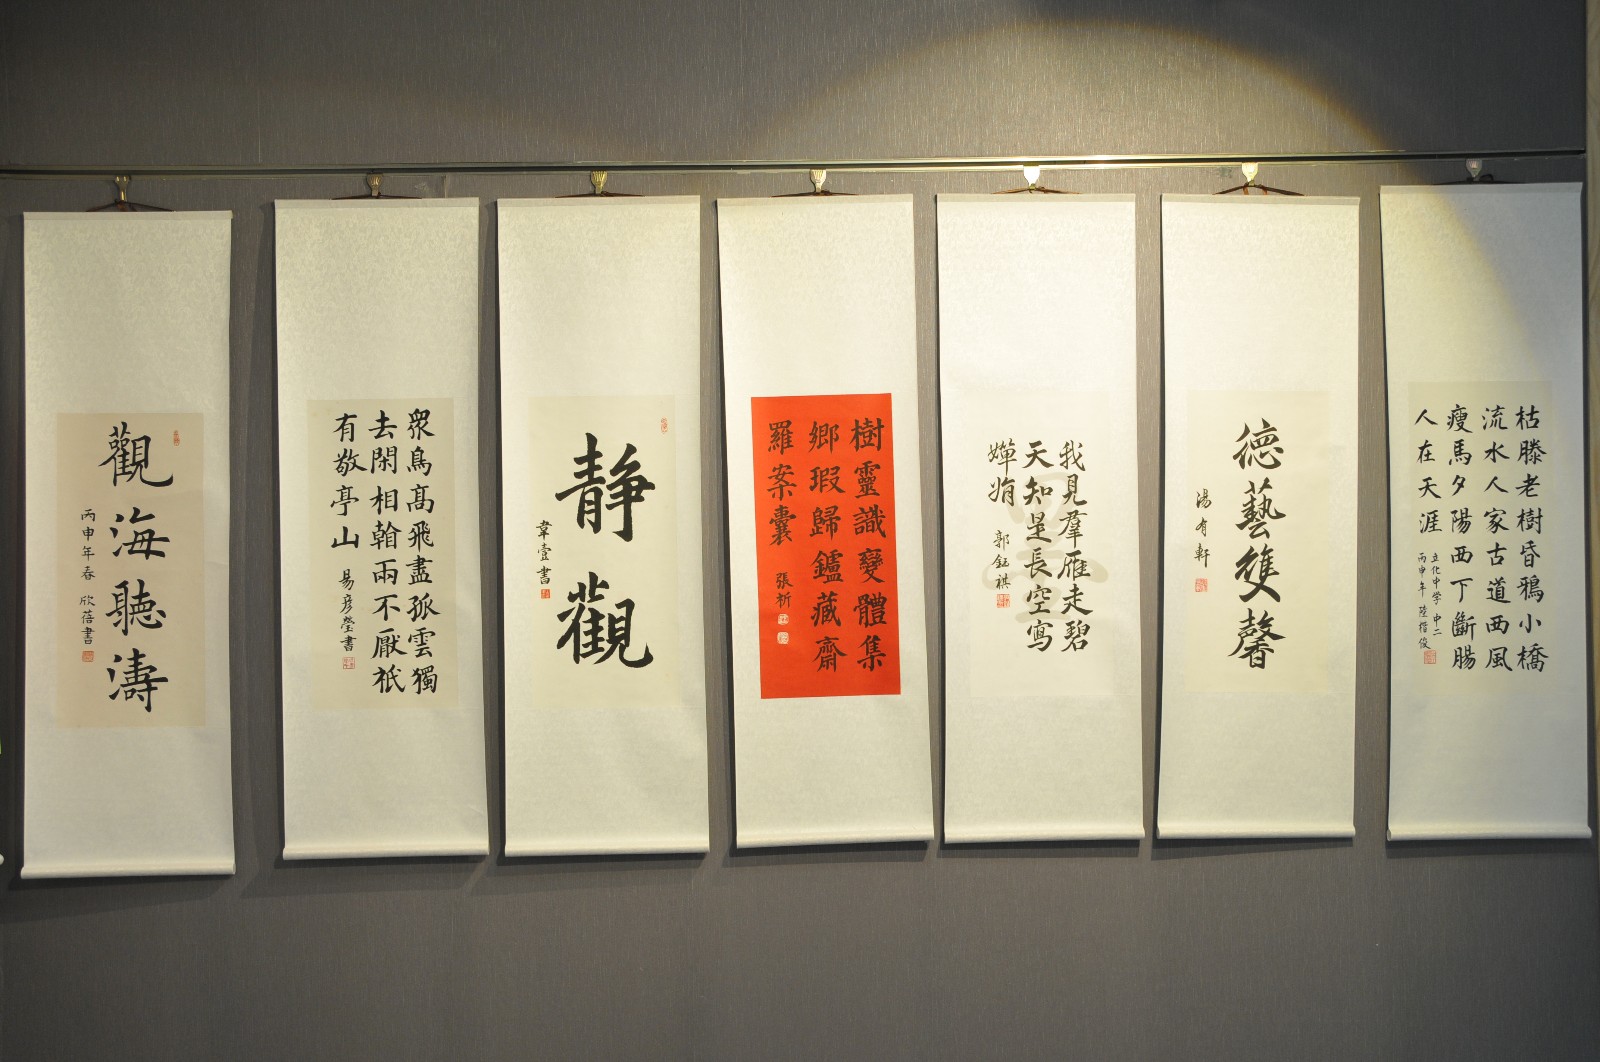 觀海聽濤
丙申年春 欣蓓書
衆鳥髙飛盡孤雲獨
去閑相翰兩不厭祇
有敬亭山 易彦瑩書
靜觀
韋壹書
樹靈識變體集
鄉瑕歸鑪藏齋
羅案囊 張析
我見羣雁走碧
天知是長空寫
嬋娟 郭鈺祺
德藝雙馨
湯有軒
枯滕老樹昏鴉小橋
流水人家古道西風
瘦馬夕陽西下斷腸
人在天涯
立化中学 中二
丙申年 陸楷俊